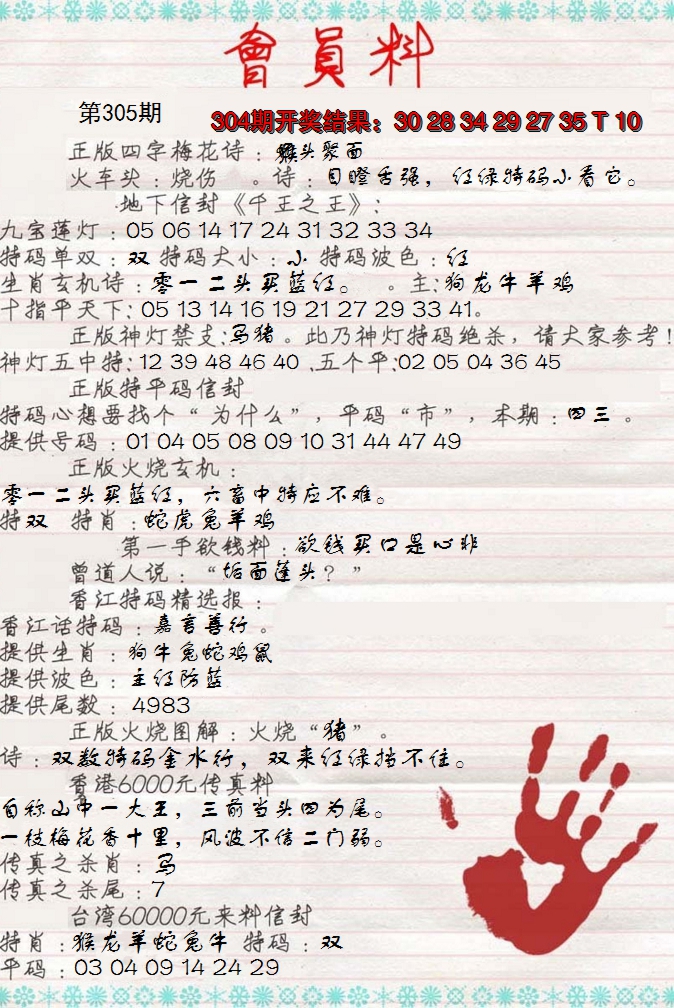 會員料
第305期
304期开奖结果：30 28 34 29 27 35 T 10
正版四字梅花诗：猴头聚面
火车头：烧伤 。诗：目瞪舌强，红绿特码小看它。
地下信封《千王之王》：
九宝莲灯：05 06 14 17 24 31 32 33 34
特码单双：双 特码大小：小 特码波色：红
生肖玄机诗：零一二头买蓝红。 。主：狗龙牛羊鸡
十指平天下：05 13 14 16 19 21 27 29 33 41。
正版神灯禁支：马猪。此乃神灯特码绝杀，请大家参考！
神灯五中特：12 39 48 46 40 .五个平：02 05 04 36 45
正版特平码信封
特码心想要找个“为什么”，平码“市”，本期：四三 。
提供号码：01 04 05 08 09 10 31 44 47 49
正版火烧玄机：
零一二头买蓝红，六畜中特应不难。
特双 特肖：蛇虎兔羊鸡
第一手欲钱料：欲钱买口是心非
曾道人说：“垢面蓬头？”
香江特码精选报：
香江话特码：嘉言善行。
提供生肖：狗牛兔蛇鸡鼠
提供波色：主红防蓝
提供尾数：4983
正版火烧图解：火烧“猪”。
诗：双数特码金水行，双来红绿挡不住。
香港6000元传真料
自称山中一大王，三前当头四为尾。
一枝梅花香十里，风波不信二门弱。
传真之杀肖：马
传真之杀尾：7
台湾60000元来料信封
特肖：猴龙羊蛇兔牛 特码：双
平码：03 04 09 14 24 29